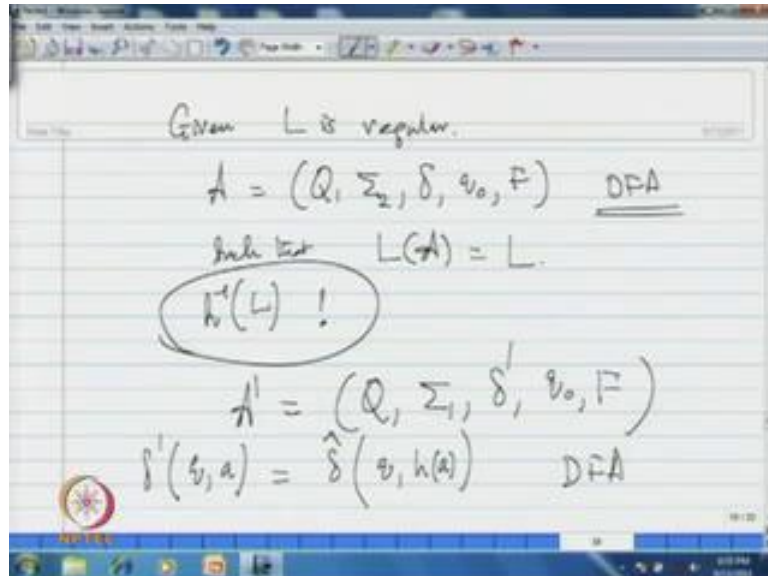 Given L is regular.
A = (Q, Σ₂, δ, q₀, F) DFA
such that L(A) = L.
h⁻¹(L) !
A' = (Q, Σ₁, δ', q₀, F)
δ'(q, a) = δ̂(q, h(a)) DFA
NPTEL